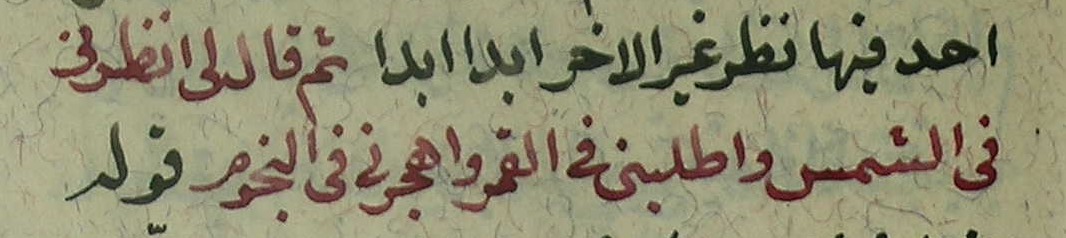 احد فيها نظر غير الاخر ابدا ابدا ثم قال لى انظرنى
فى الشمس واطلبنى فى القمر واهجرنى فى النجوم قوله